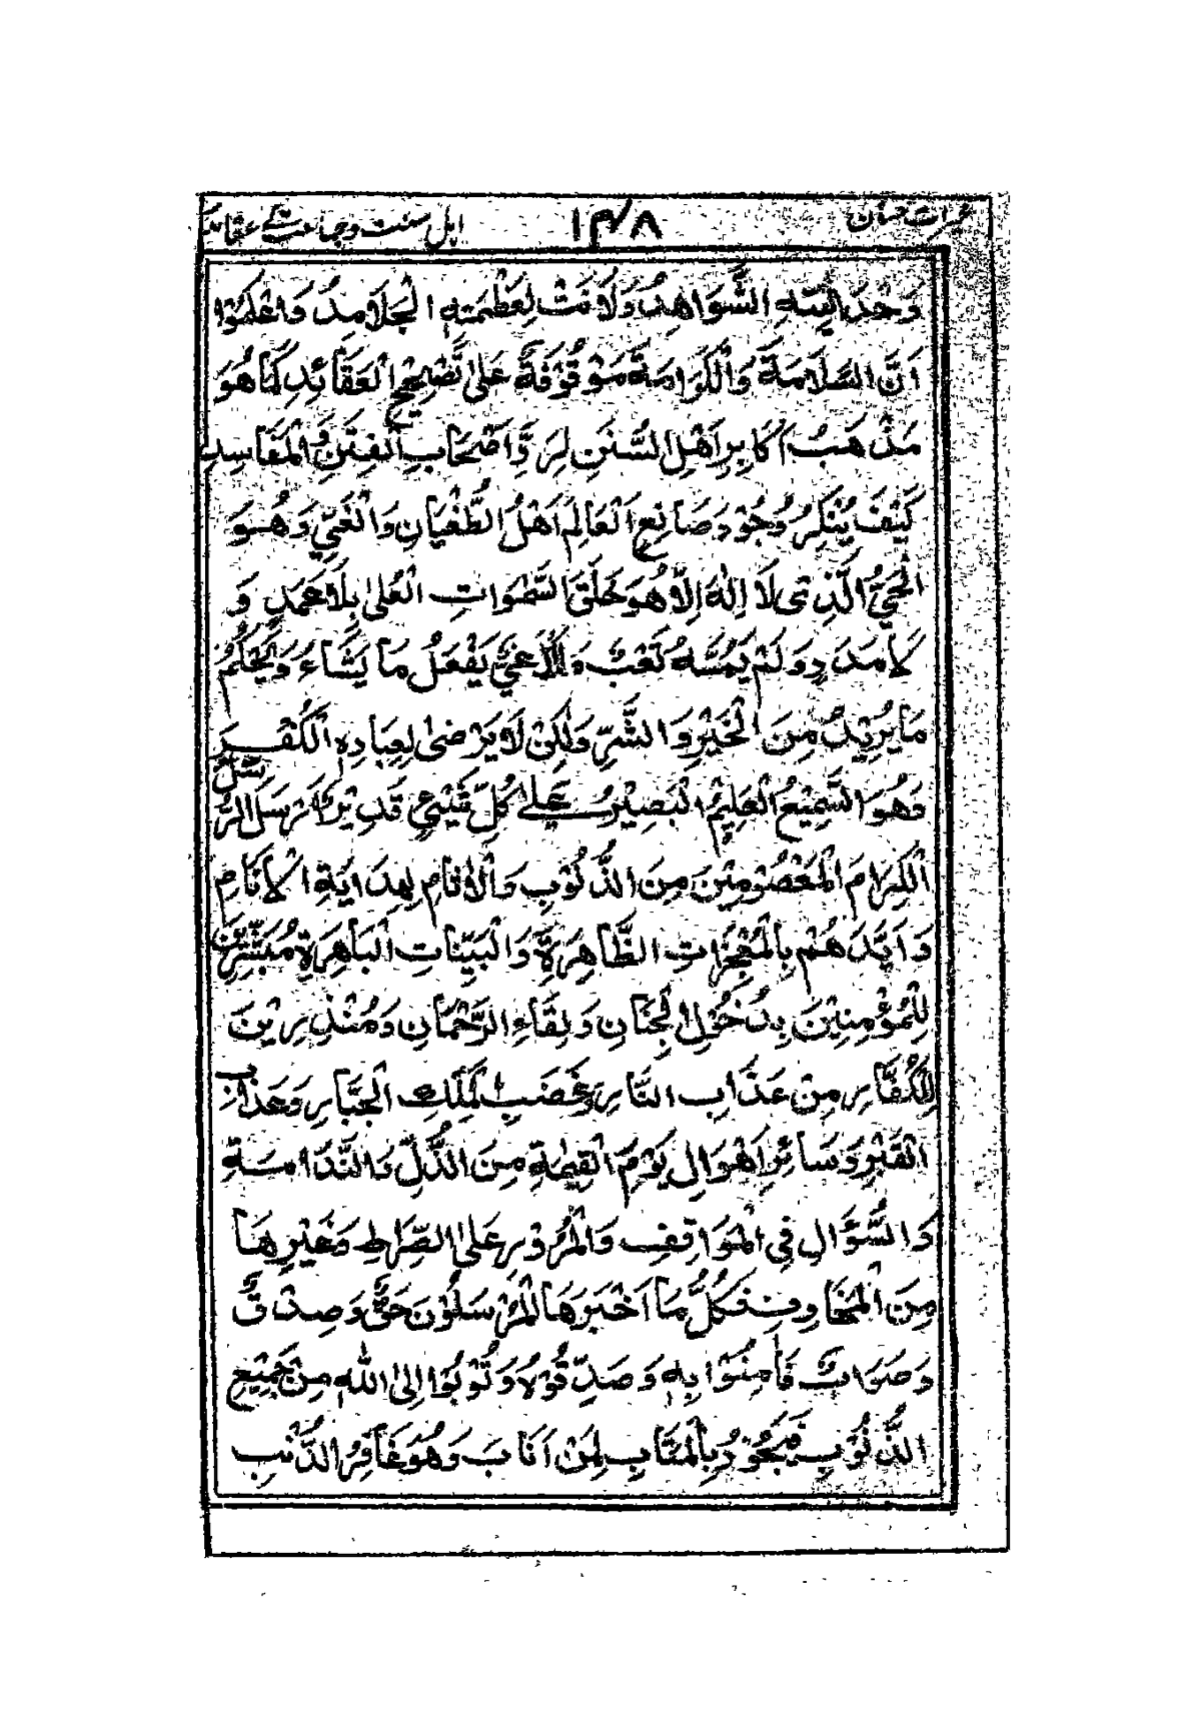 اہل سنت وجماعت کے عقائد ۱۴۸
الشَّوَاهِدُ وَلَانَتْ لِعَظْمَتِهِ الْجَلَامِدُ وَاعْلَمُوْا
اَنَّ السَّلَامَةَ وَالْكَرَامَةَ مَوْقُوْفَةٌ عَلٰى تَصْحِيْحِ الْعَقَائِدِ كَمَا هُوَ
مَذْهَبُ اَكَابِرِ اَهْلِ السُّنَنِ لِرَدِّ اَصْحَابِ الْفِتَنِ وَالْمَفَاسِدِ
كَيْفَ يُنْكِرُ وُجُوْدَ صَانِعِ الْعَالَمِ اَهْلُ الطُّغْيَانِ وَالْغَيِّ وَهُوَ
الْحَيُّ الَّذِىْ لَا اِلٰهَ اِلَّا هُوَ خَلَقَ السَّمٰوَاتِ الْعُلٰى بِلَا عَمَدٍ وَ
لَا مَدَدٍ وَلَمْ يَمَسَّهُ تَعَبٌ وَلَا عَيٌّ يَفْعَلُ مَا يَشَاءُ وَيَحْكُمُ
مَا يُرِيْدُ مِنَ الْخَيْرِ وَالشَّرِّ وَلٰكِنْ لَا يَرْضٰى لِعِبَادِهِ الْكُفْرَ
وَهُوَ السَّمِيْعُ الْعَلِيْمُ الْبَصِيْرُ عَلٰے كُلِّ شَيْءٍ قَدِيْرٌ اَرْسَلَ الرُّسُلَ
الْكِرَامَ الْمَعْصُوْمِيْنَ مِنَ الذُّنُوْبِ وَالْاٰثَامِ لِهِدَايَةِ الْاَنَامِ
وَاَيَّدَهُمْ بِالْمُعْجِزَاتِ الظَّاهِرَةِ وَالْبَيِّنَاتِ الْبَاهِرَةِ مُبَشِّرِيْنَ
لِلْمُؤْمِنِيْنَ بِدُخُوْلِ الْجِنَانِ وَلِقَاءِ الرَّحْمَانِ وَمُنْذِرِيْنَ
لِلْكُفَّارِ مِنْ عَذَابِ النَّارِ وَغَضَبِ الْمَلِكِ الْجَبَّارِ وَعَذَابِ
الْقَبْرِ وَسَائِرِ اَهْوَالِ يَوْمِ الْقِيٰمَةِ مِنَ الذُّلِّ وَالنَّدَامَةِ
وَالسُّؤَالِ فِى الْمَوَاقِفِ وَالْمُرُوْرِ عَلَى الصِّرَاطِ وَغَيْرِهَا
مِنَ الْمَخَاوِفِ فَكُلُّ مَا اَخْبَرَهَا الْمُرْسَلُوْنَ حَقٌّ وَصِدْقٌ
وَصَوَابٌ فَاٰمِنُوْا بِهٖ وَصَدِّقُوْهُ وَتُوْبُوْا اِلَى اللهِ مِنْ جَمِيْعِ
الذُّنُوْبِ بِالْمَتَابِ لِمَنْ اَنَابَ وَهُوَ غَافِرُ الذَّنْبِ